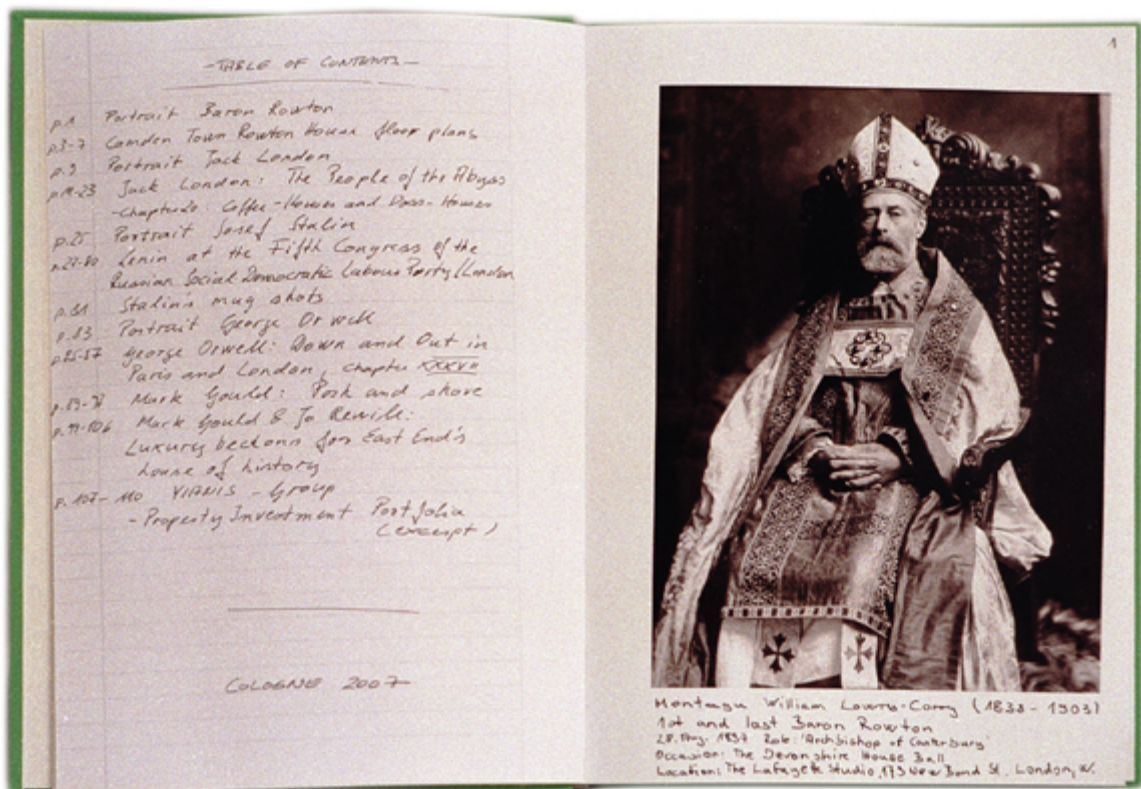 -TABLE OF CONTENTS-
p.1 Portrait Baron Rowton
p.3-7 Camden Town Rowton House floor plans
p.9 Portrait Jack London
Jack London: The People of the Abyss
-chapter: Coffee-Houses and Doss-Houses
p.25 Portrait Josef Stalin
Lenin at the Fifth Congress of the
Russian Social Democratic Labour Party/London
p.81 Stalin's mug shots
p.83 Portrait George Orwell
George Orwell: Down and Out in
Paris and London, chapter
Mark Gould: Posh and shove
p.99-106 Mark Gould & Jo Revill:
Luxury beckons for East End's
house of history
p.107-110 - Group
-Property Investment Portfolio
(excerpt)
COLOGNE 2007
1
Montagu William Lowry-Corry (1838-1903)
1st and last Baron Rowton
1897 Role: 'Archbishop of Canterbury'
Occasion: The Devonshire House Ball
Location: The Lafayette Studio, 179 New Bond St. London, W.